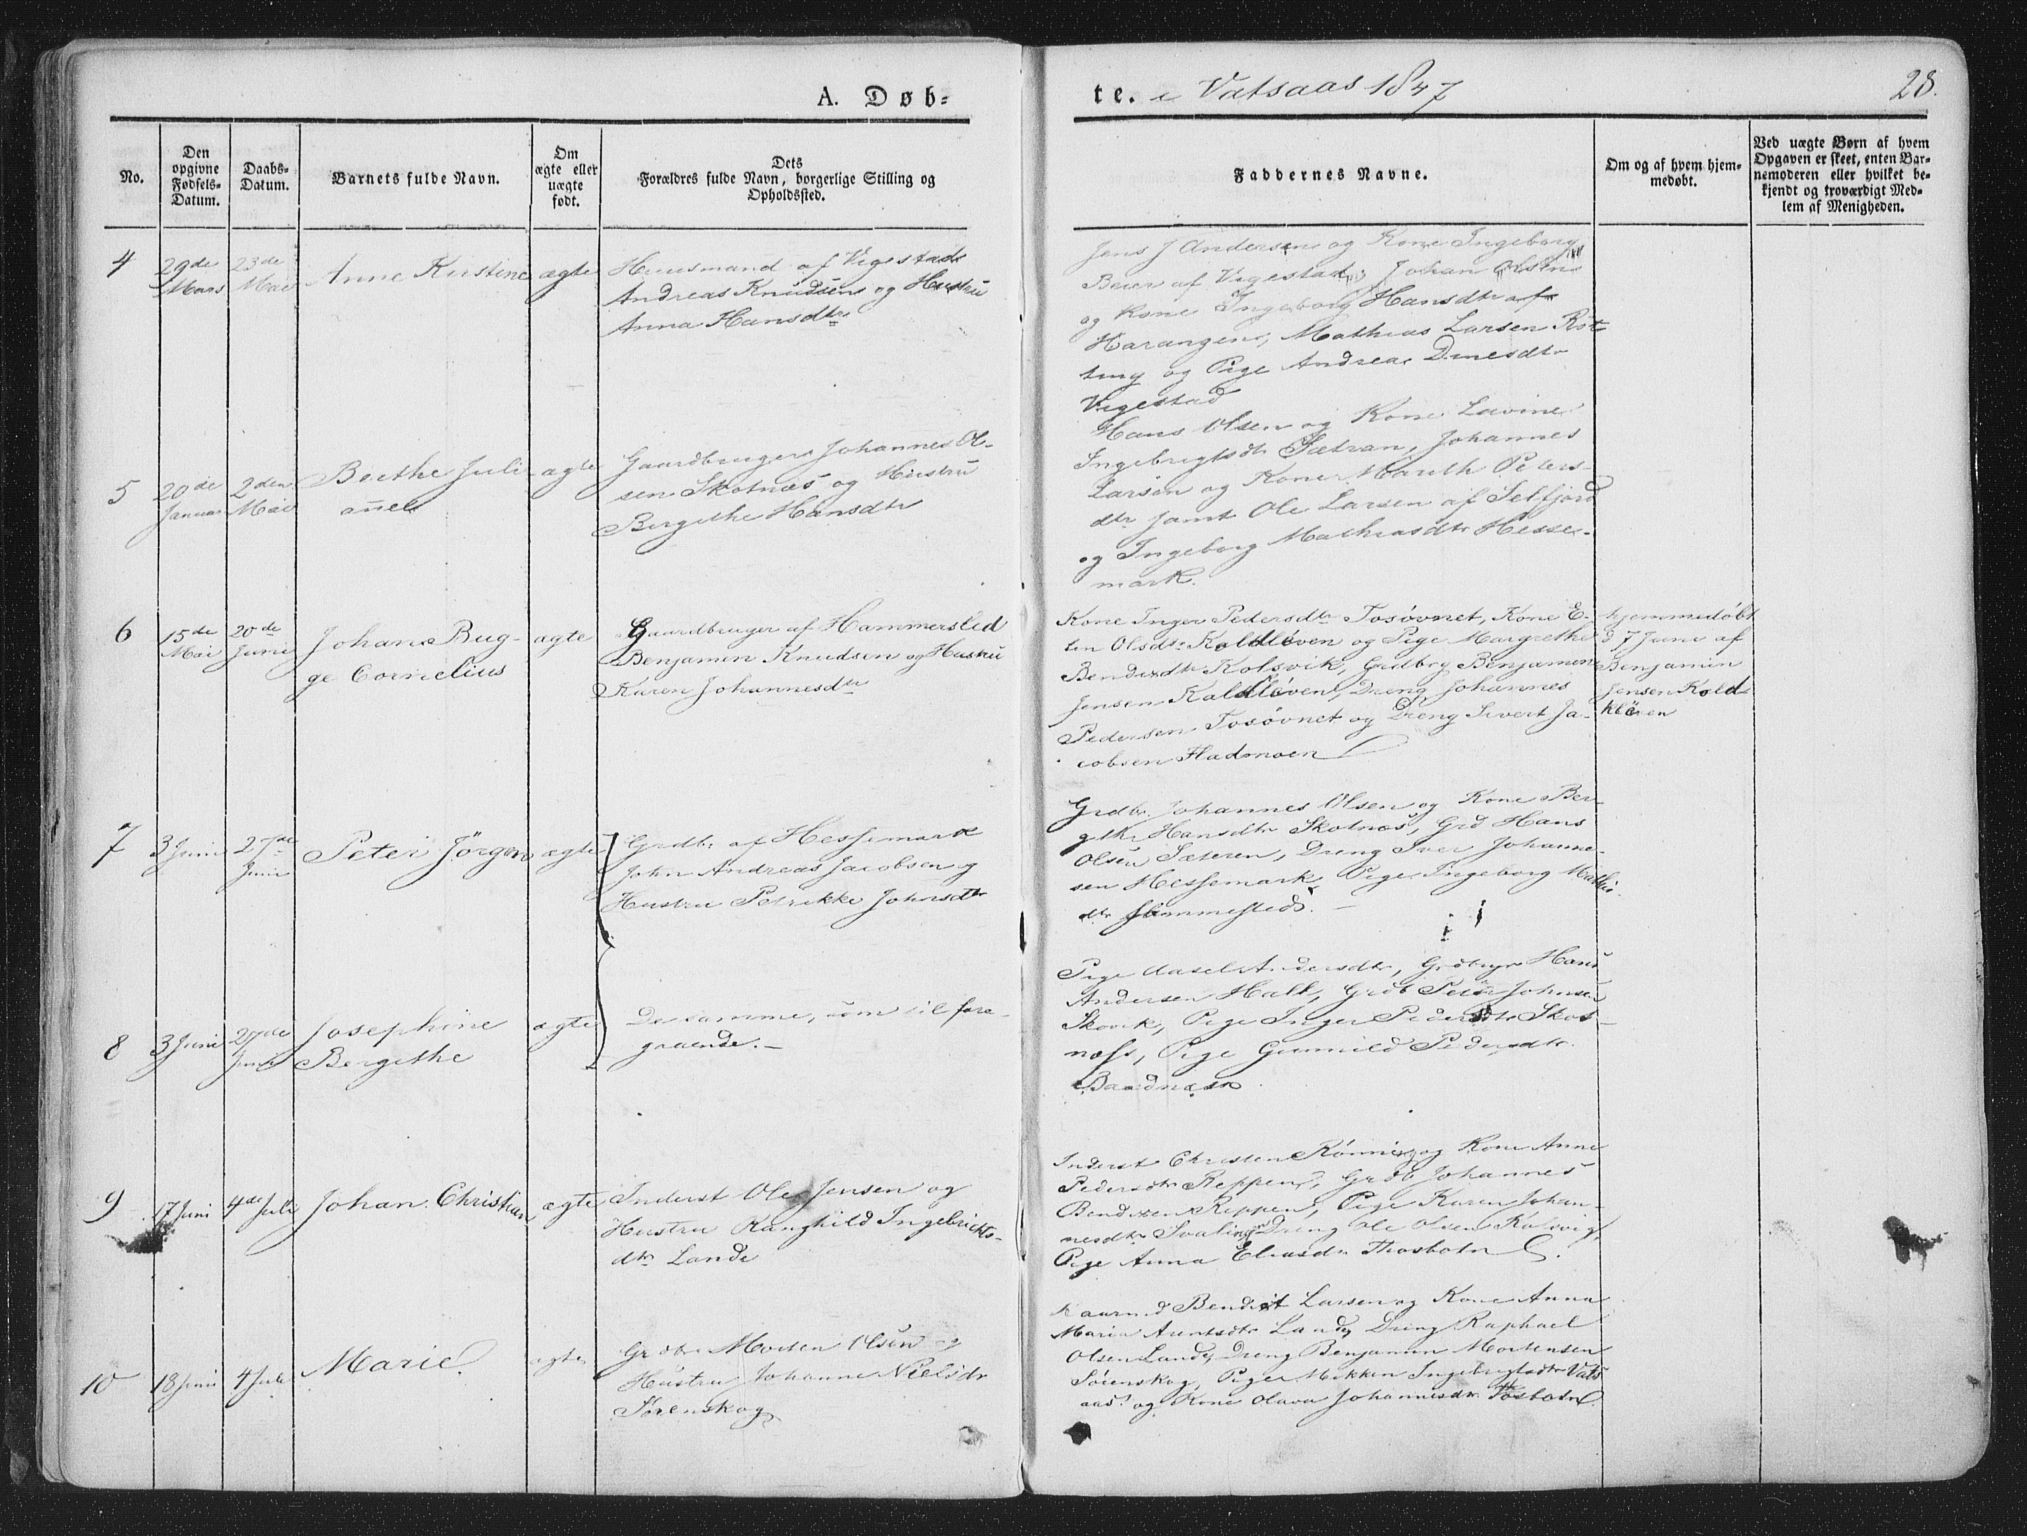 A. Døb=
te. i Vatsaas 1847
28.
No.
Den opgivne Fødsels-Datum.
Daabs-Datum.
Barnets fulde Navn.
Om ægte eller uægte født.
Dets Forældres fulde Navn, borgerlige Stilling og Opholdssted.
Faddernes Navne.
Om og af hvem hjem-
medøbt.
Ved uægte Børn af hvem
Opgaven er skeet, enten Bar-
nemoderen eller hvilket be-
kjendt og troværdigt Med-
lem af Menigheden.
4
29de Mars
23de Mai
Anne Kirstine
ægte
Huusmand af Vegestad
Andreas Knudsen og Hustru
Anna Hansdtr
Jens J Andersen og Kone Ingeborg
Beier af Vegestad, Johan Olsen
og Kone Ingeborg Hansdtr af
Harangen, Mathias Larsen Rot
ting og Pige Andrea Dinesdtr
Vegestad
5
20de Januar
2den Mai
Berthe Juli
anne
ægte
Gaardbruger Johannes Ol-
sen Skotnæs og Hustru
Bergithe Hansdtr
Hans Olsen og Kone Lavine
Ingebrigtsdtr Sætran, Johannes
Larsen og Kone Mareth Peters-
dtr samt Ole Larsen af Selfjord
og Ingeborg Mathiasdtr Hesse-
mark.
6
15de Mai
20de Juni
Johan Bug-
ge Cornelius
ægte
Gaardbruger af Hammersted
Benjamin Knudsen og Hustru
Karen Johannesdtr
Kone Inger Pedersdtr Tosövnet, Kone E-
len Olsdtr Koldkleven og Pige Margrethe
Bendixdtr Kolsvik, Grdbrg Benjamin
Jensen Koldkleven, Dreng Johannes
Pedersen Tosövnet og Dreng Sivert Ja-
cobsen Fladmoen
hjemmedøbt
d 7 Juni af
Benjamin
Jensen Kold
kleven
7
3 Juni
27de Juni
Peter Jörgen
ægte
Grdb. af Hessemark
John Andreas Jacobsen og
Hustru Petrikke Johnsdtr
Grdb. Johannes Olsen og Kone Ber
gthe Hansdtr Skotnæs, Grd Hans
Olsen Sæteren, Dreng Iver Johanne-
sen Hessemark, Pige Ingeborg Mathis
dtr Hammersted.
8
3 Juni
27de Juni
Josephine
Bergithe
ægte
De samme, som til fore-
gaaende.
Pige Aasel Andersdtr, Grdbrgr Hans
Andersen Hall, Grdb Peter Johnsen
Skovik, Pige Inger Pedersdtr Skot-
næss, Pige Gunnild Pedersdtr
Baadnæsn
9
17 Juni
4de Juli
Johan Christian
ægte
Inderst Ole Jensen og
Hustru Ranghild Ingebrikts-
dtr Lande
Inderst Christen Rönning og Kone Anne
Pedersdtr Reppen, Grdb Johannes
Bendixen Reppen, Pige Karen Johan-
nesdtr Svaling, Dreng Ole Olsen Kolsvig,
Pige Anna Eliasdtr Thosbotn.
10
18 Juni
4 Juli
Marie
ægte
Grdbr Morten Olsen og
Hustru Johanne Nielsdtr
Sörenskog
Kaarmd Bendigt Larsen og Kone Anna
Maria Arntsdtr Lande, Dreng Raphael
Olsen Lande, Dreng Benjamin Mortensen
Sörenskog, Pige Mekken Ingebrigtsdtr Vats
aas og Kone Olava Johannesdtr Tosbotn.